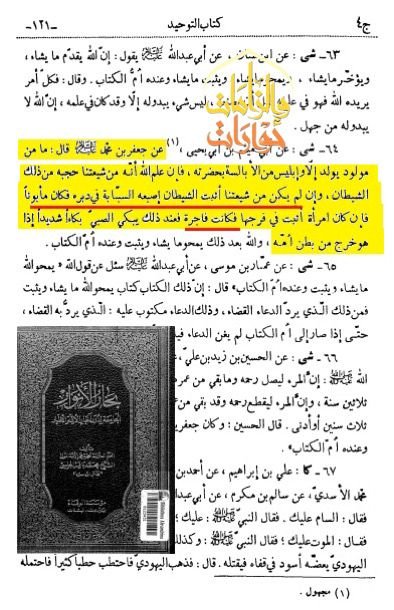 ج٤ كتاب التوحيد -١٢١-
٦٣- شى : عن ابن سنان ، عن أبي عبدالله عليه السلام يقول : إنّ الله يقدّم ما يشاء،
ويؤخّر مايشاء ، ويمحو مايشاء ويثبت مايشاء وعنده اُمّ الكتاب . وقال : فكلّ أمر
يريده الله فهو في علمه ليس شيء يبدوله إلّا وقدكان في علمه ، إنّ الله لا
يبدوله من جهل .
٦٤- شى : عن أبي يحيى ،(١) عن جعفر بن محمّد عليه السلام قال : ما من
مولود يولد إلّا وإبليس من الأبالسة بحضرته ، فإن علم الله أنّه من شيعتنا حجبه من ذلك
الشيطان ، وإن لم يكن من شيعتنا أثبت الشيطان إصبعه السبّابة في دبره فكان مأبوناً
فإن كان امرأة أثبت في فرجها فكانت فاجرة فعند ذلك يبكي الصبيّ بكاءاً شديداً إذا
هو خرج من بطن اُمّه ، والله بعد ذلك يمحوما يشاء ويثبت وعنده اُمّ الكتاب .
٦٥- شى : عن عمّاربن موسى ، عن أبي عبدالله عليه السلام سئل عن قول الله «يمحوالله
ما يشاء ويثبت وعنده اُمّ الكتاب» قال : إنّ ذلك الكتاب كتاب يمحوالله مايشاء ويثبت
فمن ذلك الّذي يردّ الدعاء القضاء ، وذلك الدعاء مكتوب عليه : الّذي يردّ به القضاء،
حتّى إذا صار إلى اُمّ الكتاب لم يغن الدعاء
٦٦- شى : عن الحسين بن زيدبن عليّ،
الله عليه السلام : إنّ المرء ليصل رحمه ومابقي من عمره
ثلاثين سنة ، وإنّ المرء ليقطع رحمه وقد بقي من
ثلاث سنين أو أدنى . قال الحسين : وكان جعفر
وعنده اُمّ الكتاب» .
٦٧- كا : علي بن إبراهيم ، عن أحمدبن
محمّد الأسديّ ، عن سالم بن مكرم ، عن أبي عبدالله
فقال : السام عليك . فقال النبيّ : عليك ؛
فقال : الموت عليك ؛ فقال النبيّ : وكذلك
اليهوديّ يعضّه أسود في قفاه فيقتله . قال : فذهب اليهوديّ فاحتطب حطباً كثيراً فاحتمله
(١) مجهول .
بحار الأنوار